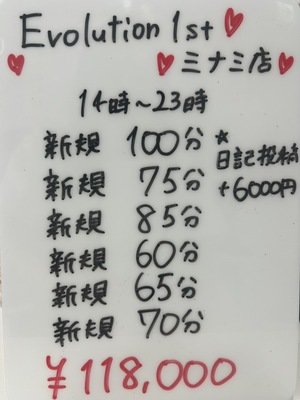 Evolution 1st♥
♥ ♥ミナミ店♥
14時~23時
新規 100分
新規 75分
新規 85分
新規 60分
新規 65分
新規 70分
*
日記投稿
+6000円
¥118,000